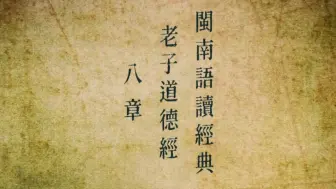 閩南語讀經典
老子道德經
八章